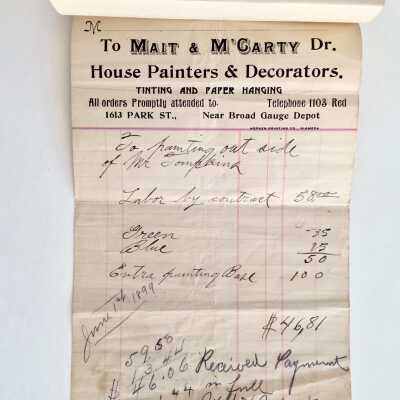 M
To MAIT & McCARTY Dr.
House Painters & Decorators.
TINTING AND PAPER HANGING
All orders Promptly attended to. Telephone 1103 Red
1613 PARK ST., Near Broad Gauge Depot
To painting out side
of Mr Tompkins
Labor by contract 58.00
Green 35
Blue 15
50
Extra painting Base 100
June 1st 1899
$46,81
59.50
13.44 Received Payment
$46.06 in full
.44